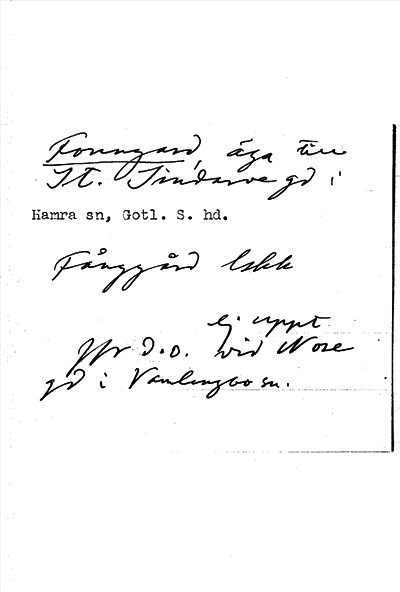 Fonngard, äga till
St. Sindarve gd i
Hamra sn, Gotl. S. hd.
Fånggård lskk
ej uppt
jfr d.o. vid Nore
gd i Vamlingbo sn.